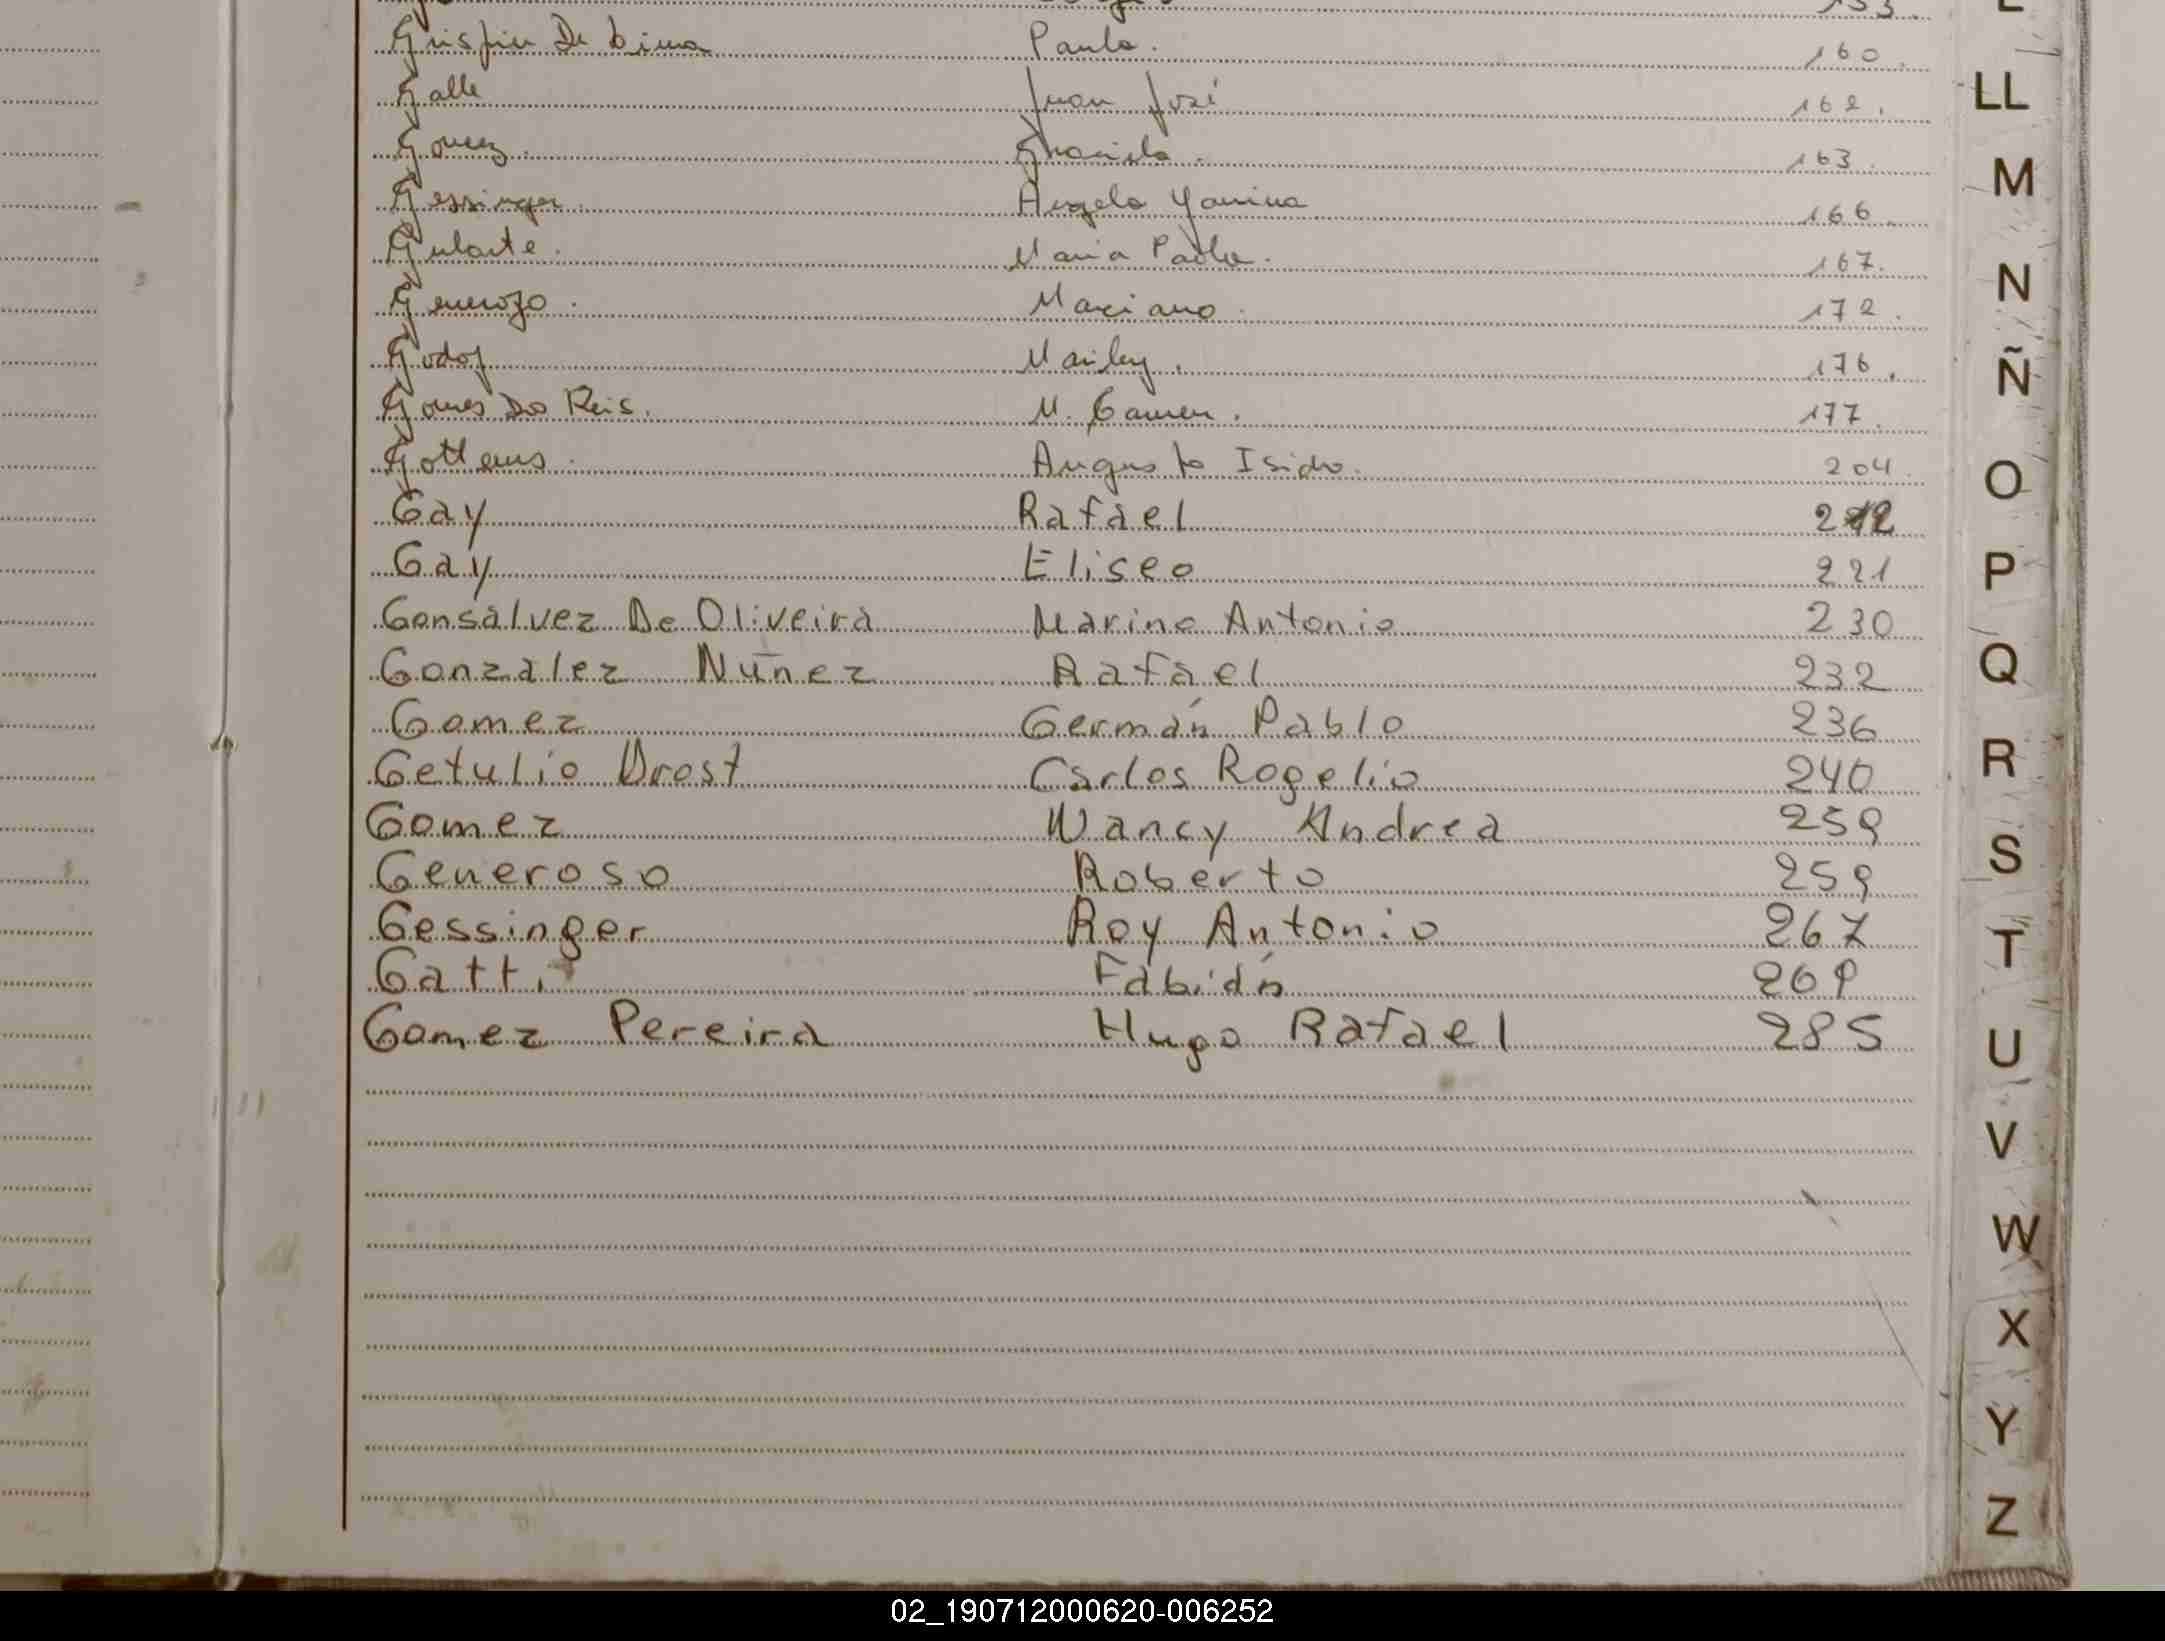 Grispin De Lima Paula. 160.
Galle Juan José 162.
Gomez. Graciela. 163.
Gessinger. Angela Yanina 166.
Gularte. Maria Paola. 167.
Generozo. Marciano. 172.
Godoy Marley. 176.
Gomes Dos Reis. M. Carmen. 177.
Augusto Isidro. 204.
Gay Rafael
Gay Eliseo 221
Gonsalvez De Oliveira Marino Antonio 230
Gonzalez Nuñez Rafael 232
Gomez Germán Pablo 236
Getulio Drost Carlos Rogelio 240
Gomez Nancy Andrea 259
Generoso Roberto 259
Gessinger Roy Antonio 267
Gatti Fabián 269
Gomez Pereira Hugo Rafael 285
LL
M
N
Ñ
O
P
Q
R
S
T
U
V
W
X
Y
Z
02_190712000620-006252